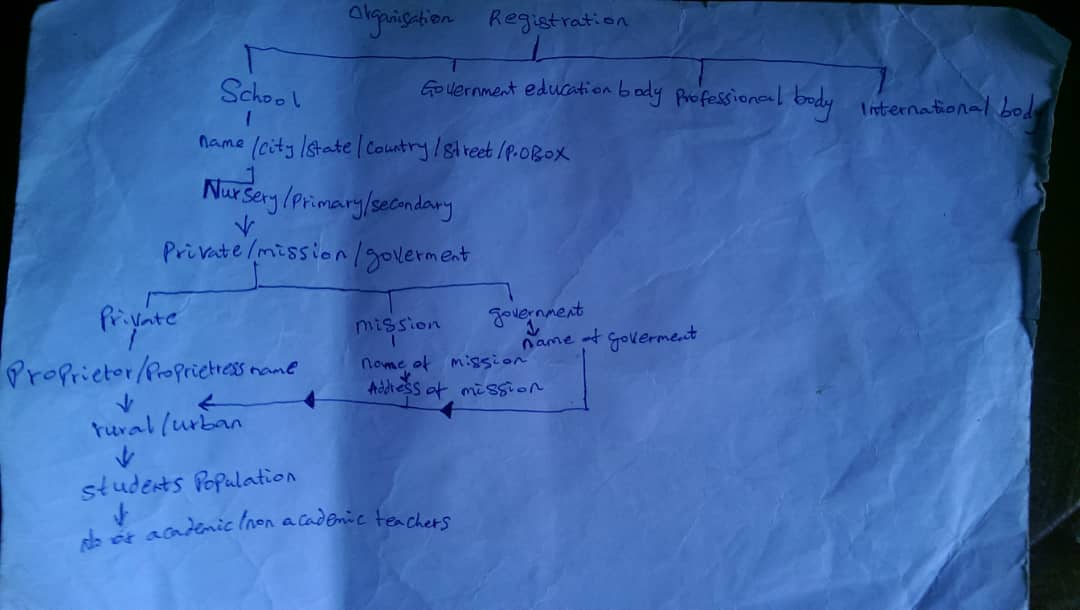 Organisation Registration
School
Government education body
Professional body
International body
name/city/state/country/street/P.OBOX
Nursery/primary/secondary
Private/mission/goverment
Private
mission
government
name of goverment
Proprietor/Proprietress name
name of mission
Address of mission
rural/urban
students Population
No of academic/non academic teachers